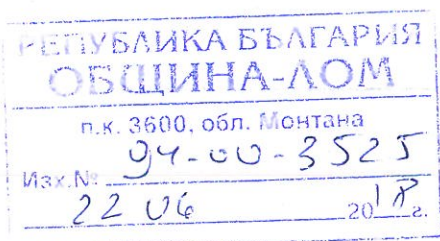 РЕПУБЛИКА БЪЛГАРИЯ
ОБЩИНА-ЛОМ
п.к. 3600, обл. Монтана
Изх.№ 94-00-3525
22 06 2018 г.